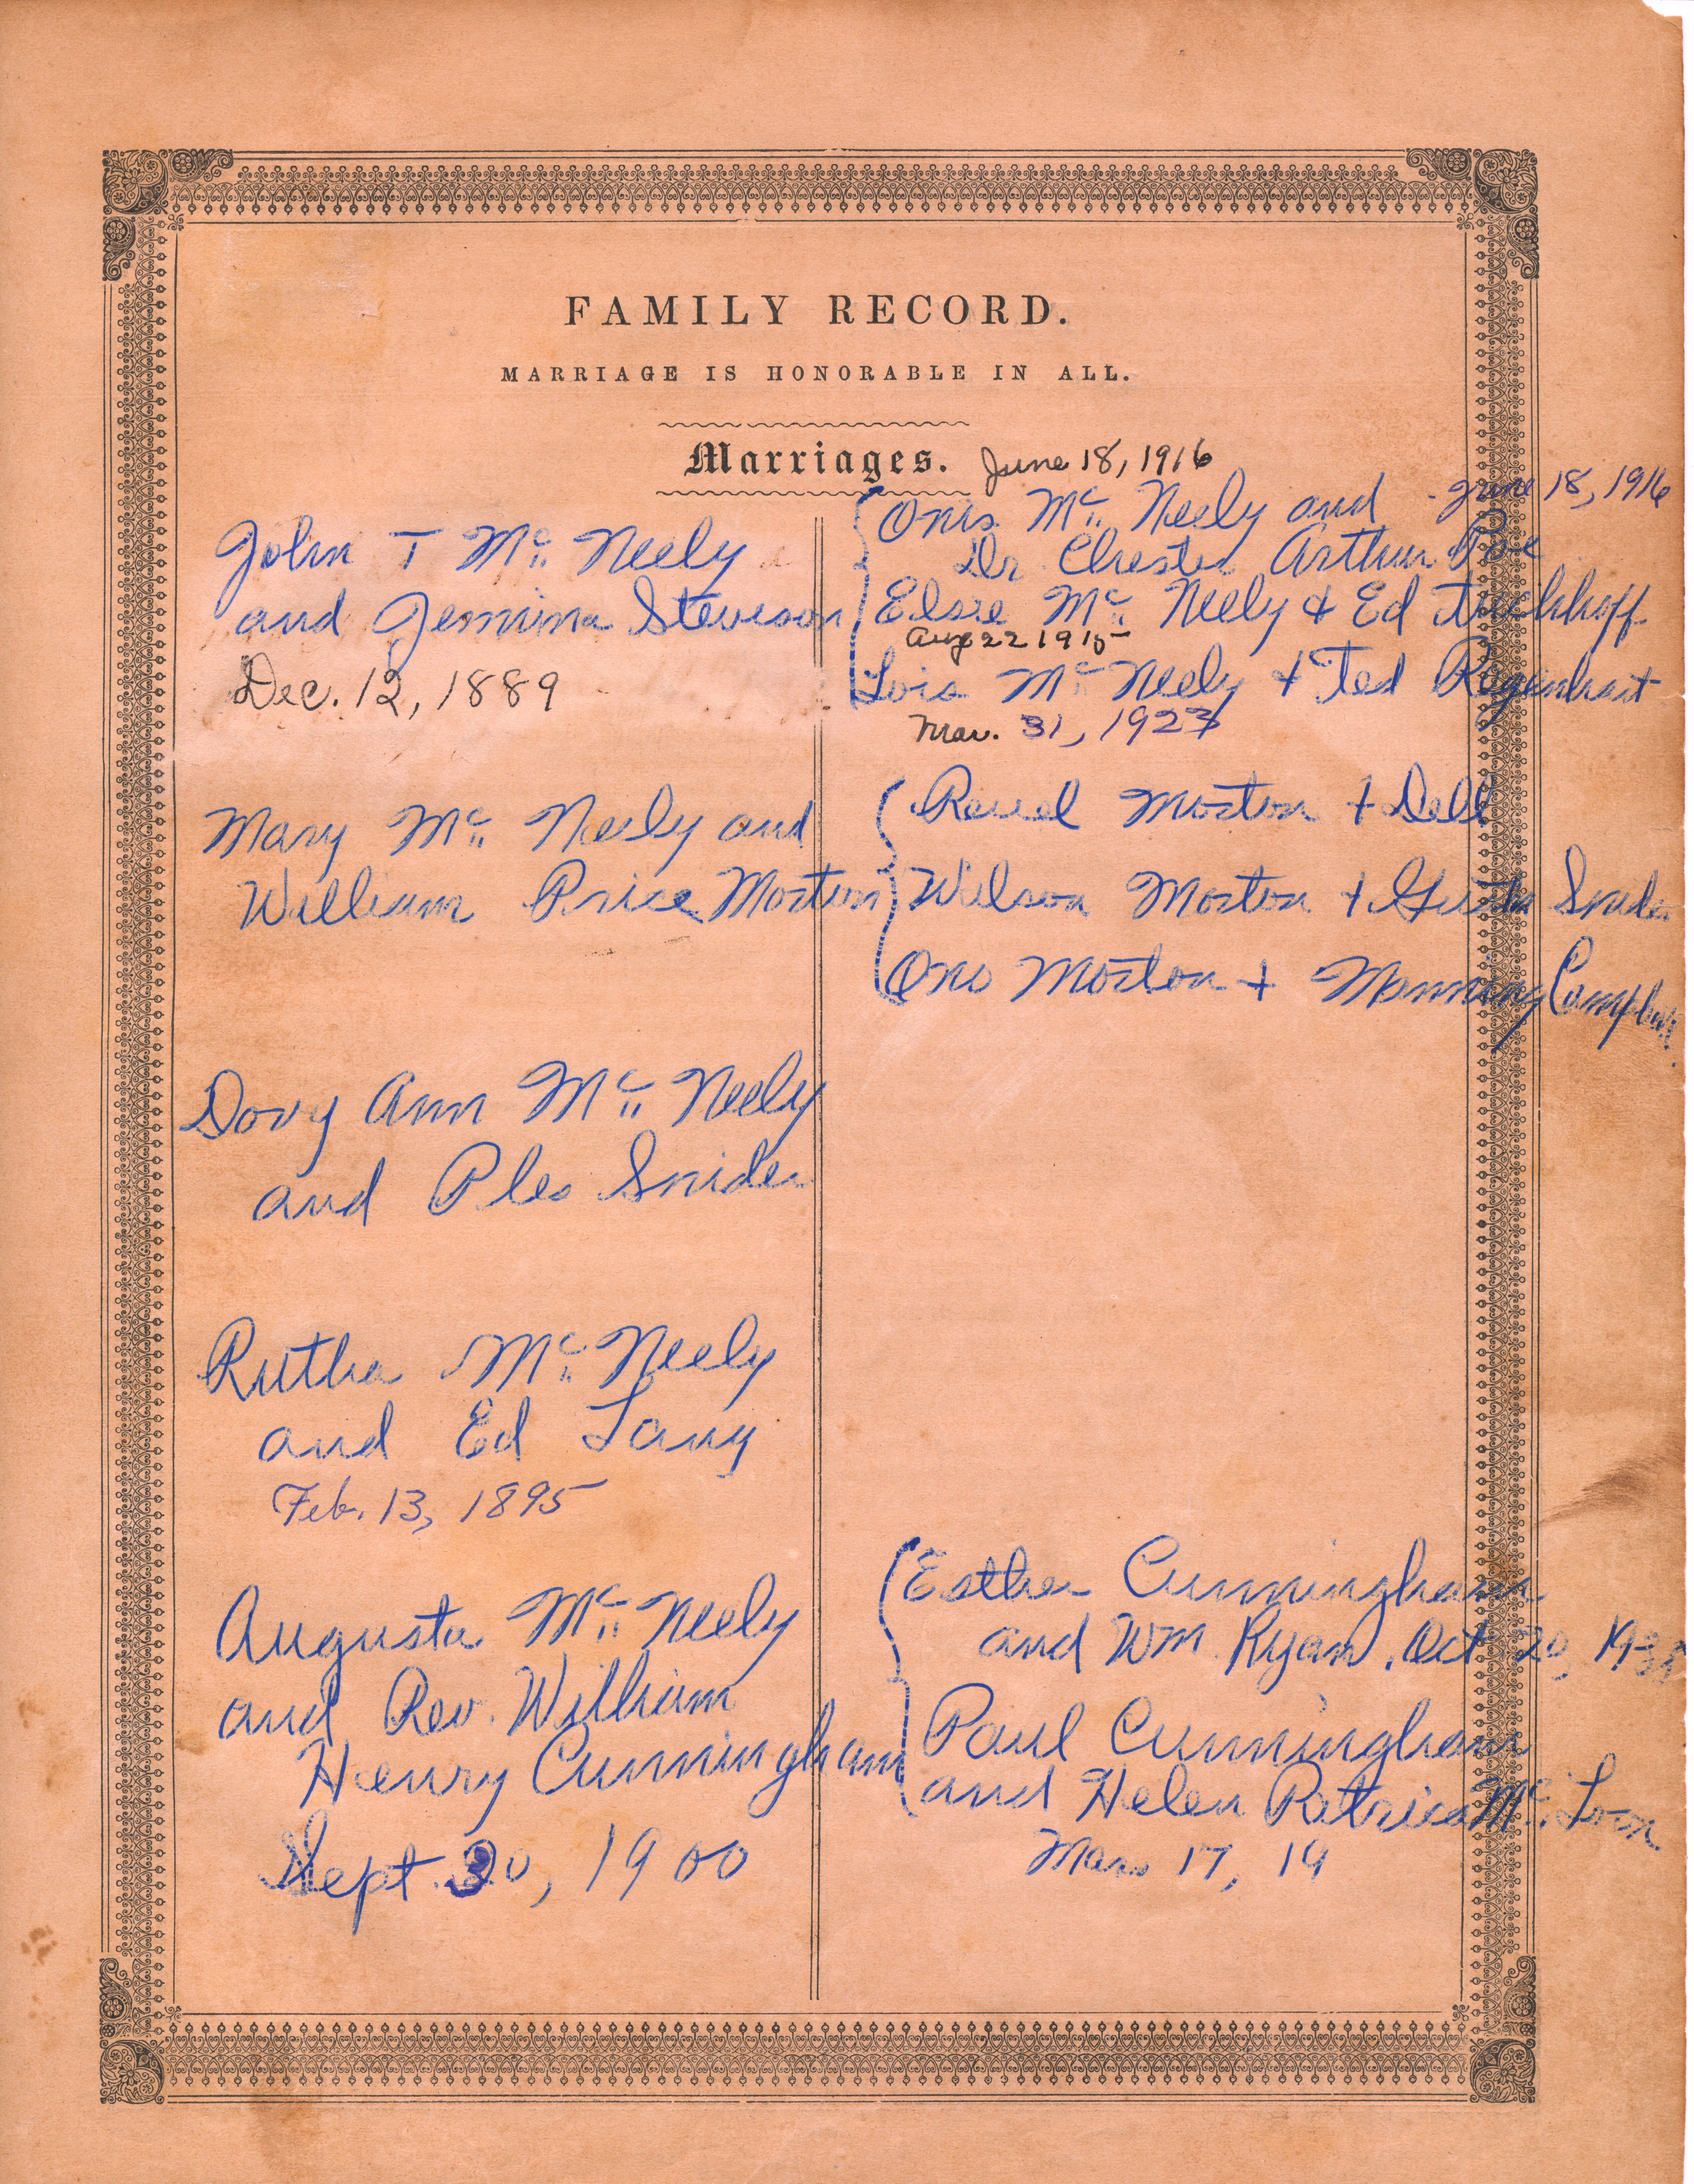 FAMILY RECORD.
MARRIAGE IS HONORABLE IN ALL.
Marriages. June 18, 1916
John T Mc Neely
and Jemima Stevison
Dec. 12, 1889
Mary Mc Neely and
William Price Morton
Dovy Ann Mc Neely
and Ples Snider
Rutha Mc Neely
and Ed Lang
Feb. 13, 1895
Augusta Mc Neely
and Rev. William
Henry Cunningham
Sept. 30, 1900
Mc Neely and - June 18, 1916
Dr. Chester Arthur Poe
Elsie Mc Neely & Ed
Aug 22 1915
Lois Mc Neely + Ted Regenhart
Mar. 31, 1923
Morton + Dell
Wilson Morton + Gusta Snider
Morton + Manning
Esther Cunningham
and Wm Ryan, Oct 20,
Paul Cunningham
and Helen Patricia Mc
Mar. 17, 19